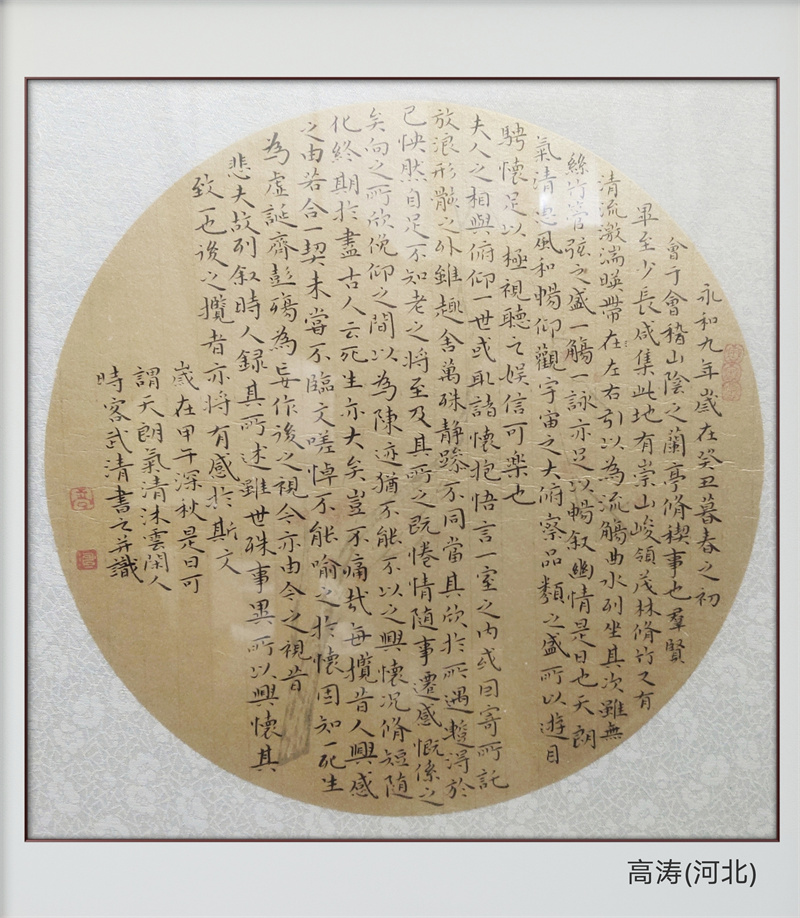 永和九年歲在癸丑暮春之初
會于會稽山陰之蘭亭脩稧事也羣賢
畢至少長咸集此地有崇山峻領茂林脩竹又有
清流激湍暎帶在左右引以為流觴曲水列坐其次雖無
絲竹管弦之盛一觴一詠亦足以暢叙幽情是日也天朗
氣清惠風和暢仰觀宇宙之大俯察品類之盛所以遊目
騁懷足以極視聽之娱信可樂也
夫人之相與俯仰一世或取諸懷抱悟言一室之内或因寄所託
放浪形骸之外雖趣舍萬殊静躁不同當其欣於所遇蹔得於
己怏然自足不知老之將至及其所之既惓情随事遷感慨係之
矣向之所欣俛仰之間以為陳迹猶不能不以之興懷況脩短随
化終期於盡古人云死生亦大矣豈不痛哉每攬昔人興感
之由若合一契未嘗不臨文嗟悼不能喻之於懷固知一死生
為虛誕齊彭殤為妄作後之視今亦由今之視昔
悲夫故列叙時人録其所述雖世殊事異所以興懷其
致一也後之攬者亦将有感於斯文
歲在甲午深秋是日可
謂天朗氣清沐雲閑人
時客武清書之并識
高涛(河北)